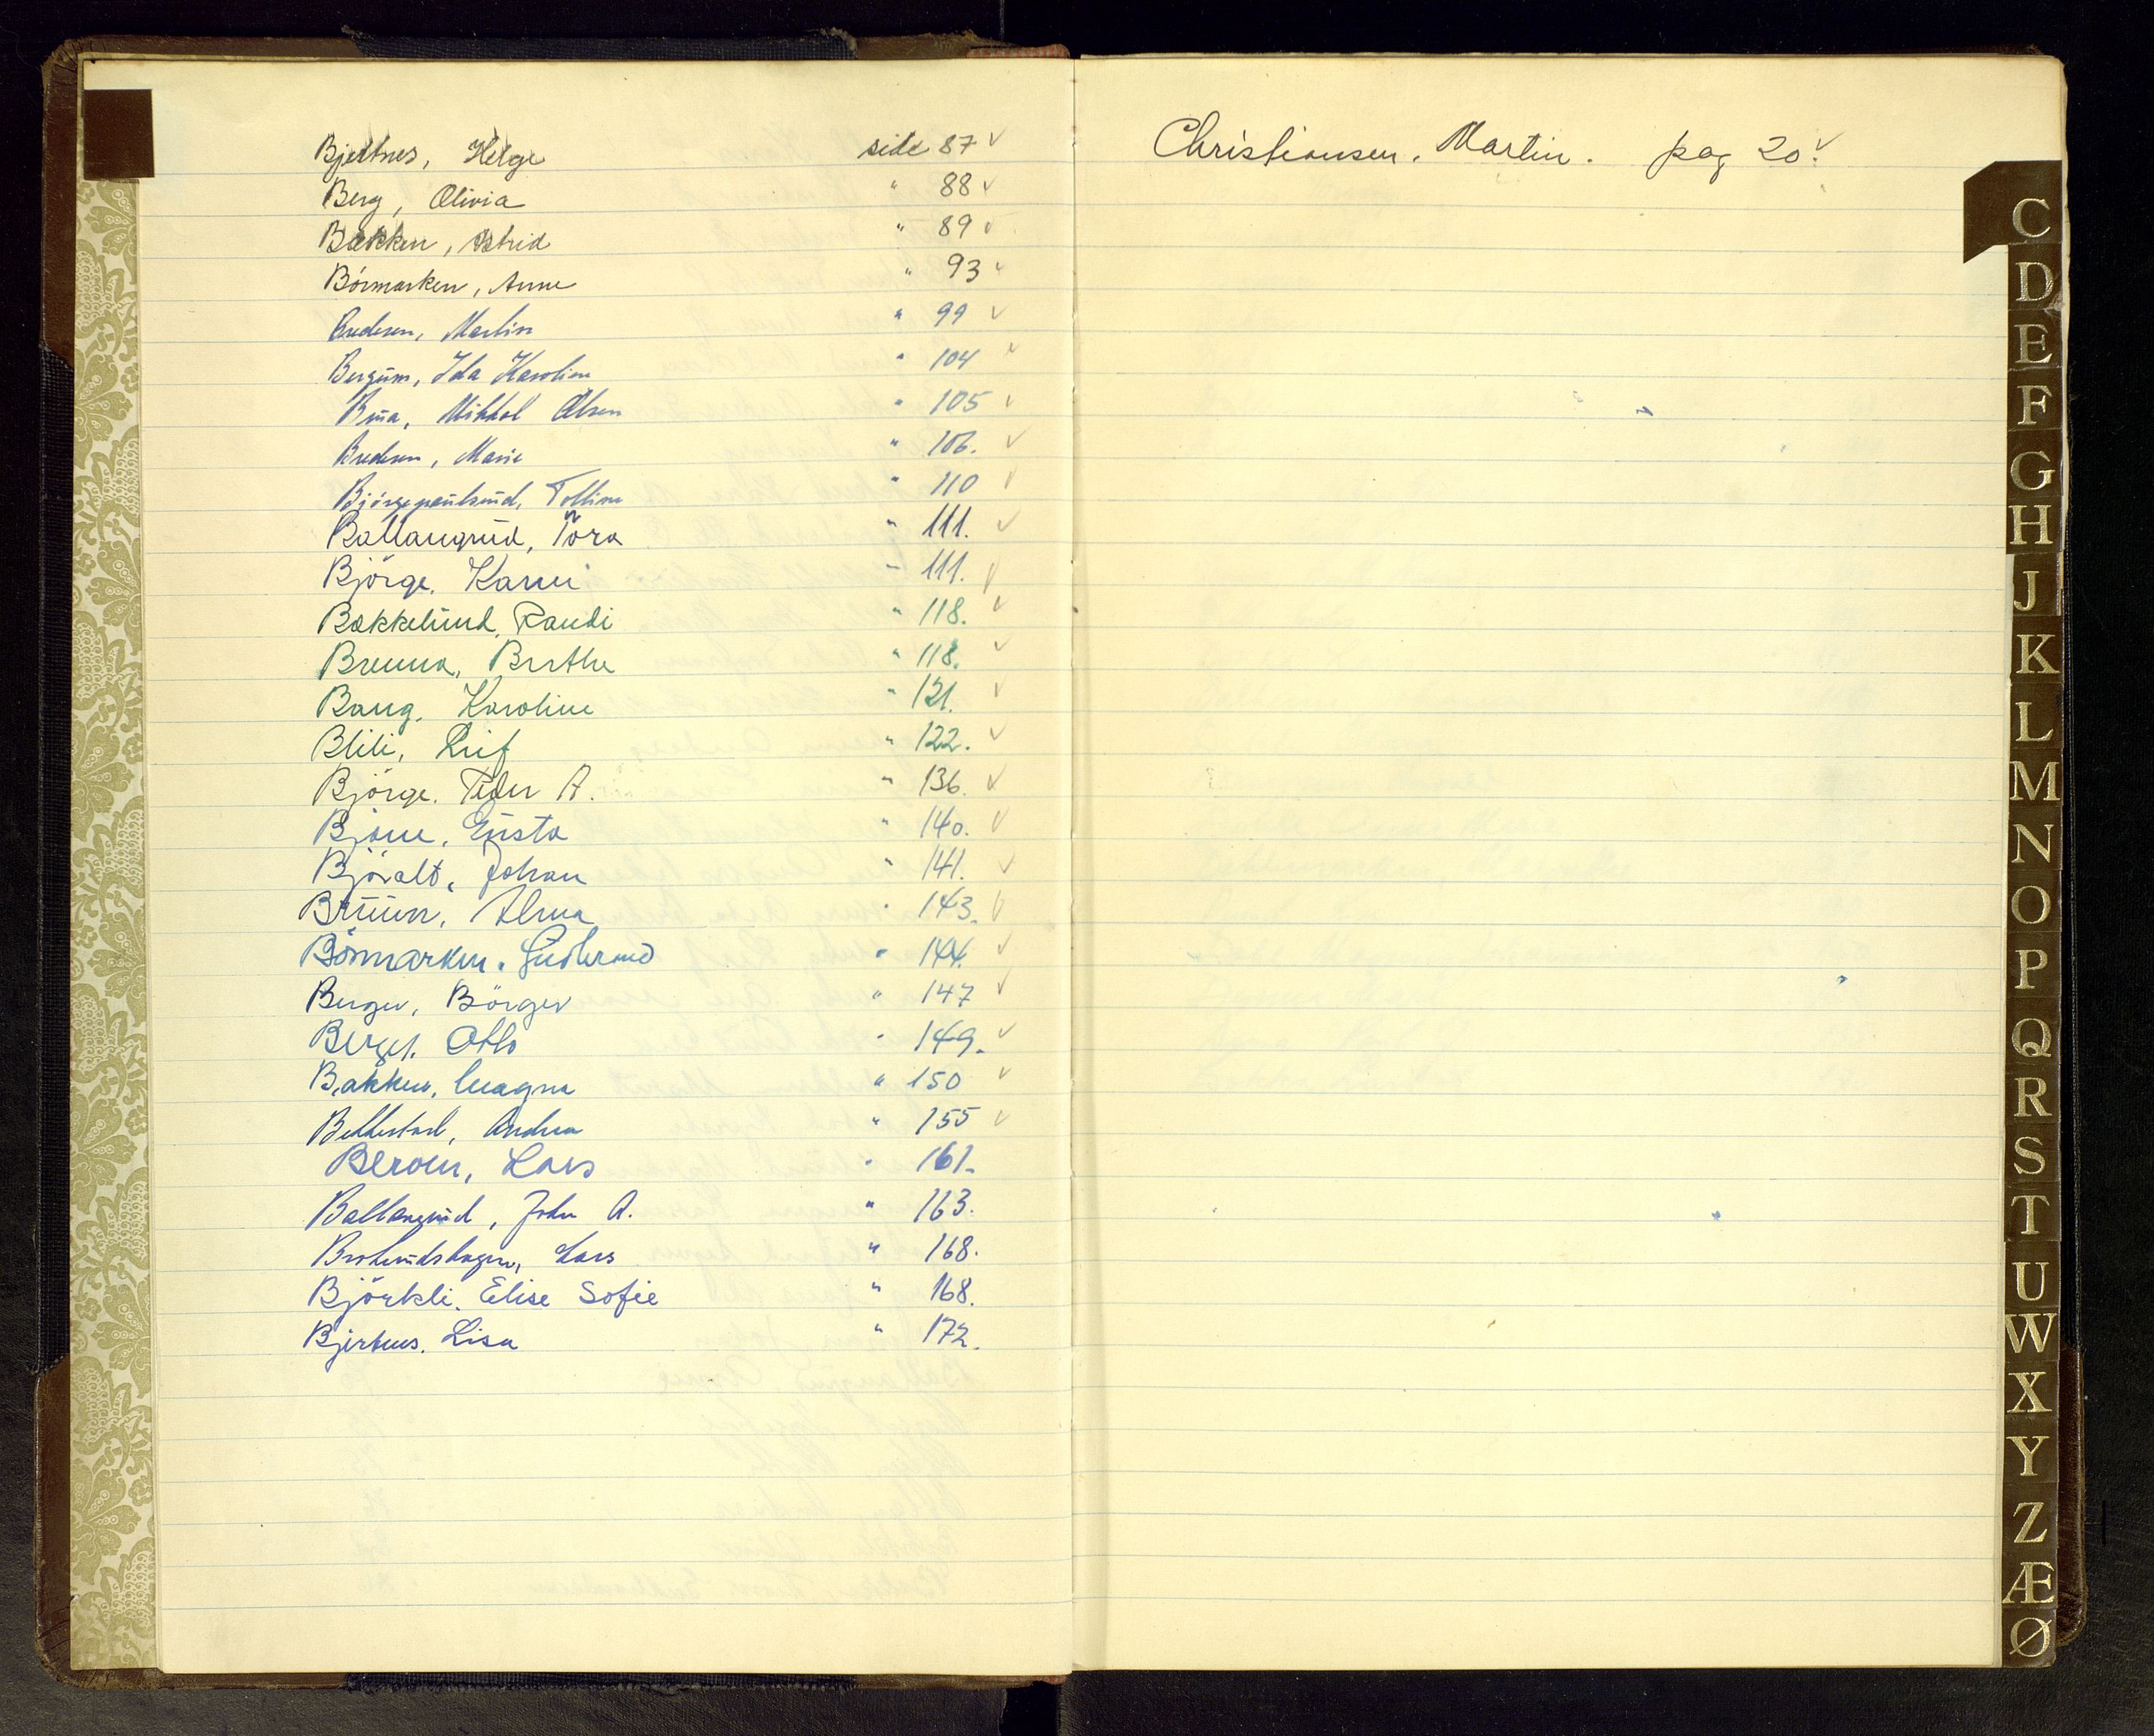 Bjertnes, Helge side 87 ✓
Berg, Olivia " 88 ✓
Bækken, Astrid " 89 ✓
Börmarken, Anne " 93 ✓
Bredesen, Martin " 99 ✓
Bergum, Ida Karoline " 104 ✓
Bråa, Mikkel Olsen " 105 ✓
Bredesen, Marie " 106. ✓
Tolline " 110 ✓
Ballangrud, Tora " 111. ✓
Björge, Kari " 111. ✓
Bækkelund, Randi " 118. ✓
Brenna, Berthe " 118. ✓
Bang, Karoline " 121. ✓
Blili, Leif " 122. ✓
Björge. Peder A. " 136. ✓
Gusta " 140. ✓
Björalt, Johan " 141. ✓
Bruun, Alma " 143. ✓
Börmarken. Gudbrand " 144. ✓
Berger, Börger " 147 ✓
Berget. Otto " 149. ✓
Bakken, Magna " 150 ✓
Andrea " 155 ✓
Beroen, Lars " 161.
Ballangrud, John A. " 163.
Lars " 168.
Björkli. Elise Sofie " 168.
Bjertnes. Lisa " 172.
Christiansen. Martin. pag 20. ✓
C
D
E
F
G
H
J
K
L
M
N
O
P
Q
R
S
T
U
W
X
Y
Z
Æ
Ø